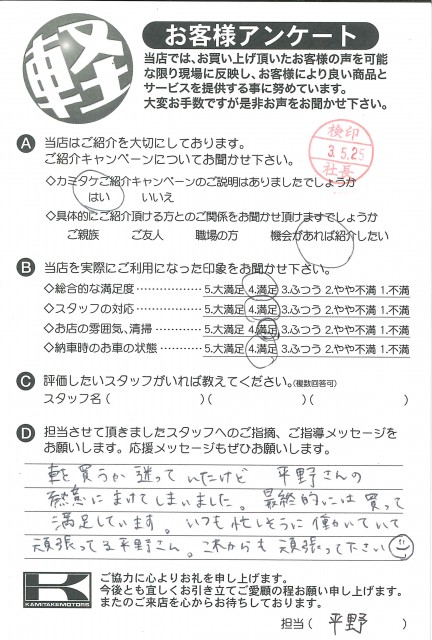 軽
お客様アンケート
当店では、お買い上げ頂いたお客様の声を可能
な限り現場に反映し、お客様により良い商品と
サービスを提供する事に努めています。
大変お手数ですが是非お声をお聞かせ下さい。
検印
3.5.25
社長
A 当店はご紹介を大切にしております。
ご紹介キャンペーンについてお聞かせ下さい。
◇カミタケご紹介キャンペーンのご説明はありましたでしょうか
はい いいえ
◇具体的にご紹介頂ける方とのご関係をお聞かせ頂けますでしょうか
ご親族 ご友人 職場の方 機会があれば紹介したい
B 当店を実際にご利用になった印象をお聞かせ下さい。
◇総合的な満足度 ・・・・・・・・・・・・ 5.大満足 4.満足 3.ふつう 2.やや不満 1.不満
◇スタッフの対応 ・・・・・・・・・・・・ 5.大満足 4.満足 3.ふつう 2.やや不満 1.不満
◇お店の雰囲気、清掃 ・・・・・・・・ 5.大満足 4.満足 3.ふつう 2.やや不満 1.不満
◇納車時のお車の状態 ・・・・・・・・ 5.大満足 4.満足 3.ふつう 2.やや不満 1.不満
C 評価したいスタッフがいれば教えてください。(複数回答可)
スタッフ名 ( )( )( )
D 担当させて頂きましたスタッフへのご指摘、ご指導メッセージを
お願いします。応援メッセージもぜひお願いします。
車を買うか迷っていたけど 平野さんの
熱意にまけてしまいました。最終的には買って
満足しています。いつも忙しそうに働いていて
頑張ってる平野さん。これからも頑張って下さい
K
KAMITAKEMOTORS
ご協力に心よりお礼を申し上げます。
今後とも宜しくお引き立てご愛顧の程お願い申し上げます。
またのご来店を心からお待ちしております。
担当 ( 平野 )